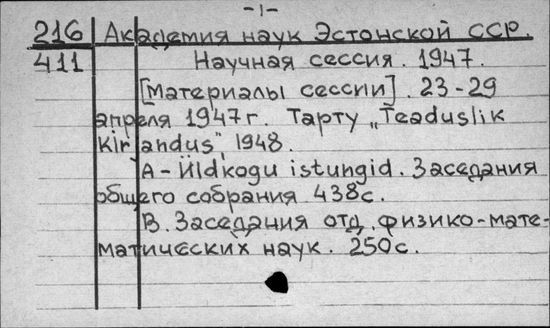 -1-
216 Академия наук Эстонской ССР.
411 Научная сессия. 1947.
[Материалы сессии]. 23-29
апреля 1947 г. Тарту „Teaduslik
Kirjandus", 1948.
A - Üldkogu istungid. Заседания
общего собрания 438с.
В. Заседания отд. физико-мате-
матических наук. 250с.